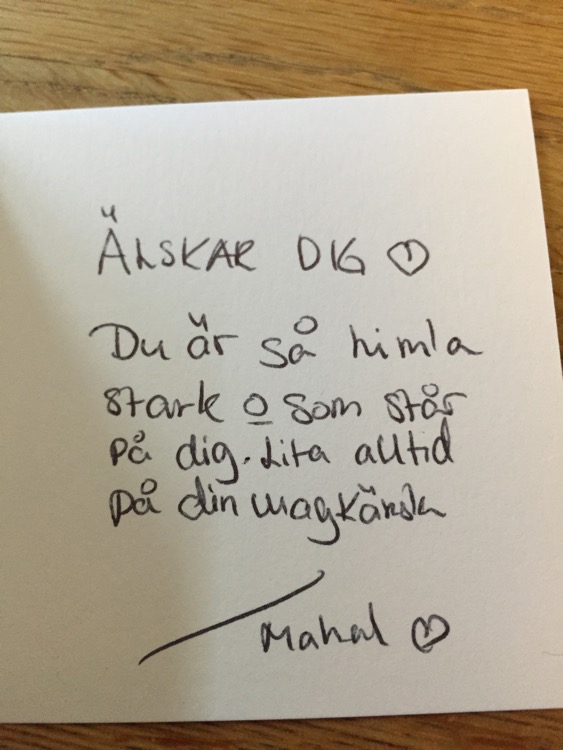 ÄLSKAR DIG ♡
Du är så himla
stark o som står
på dig. Lita alltid
på din magkänsla
Mahal ♡